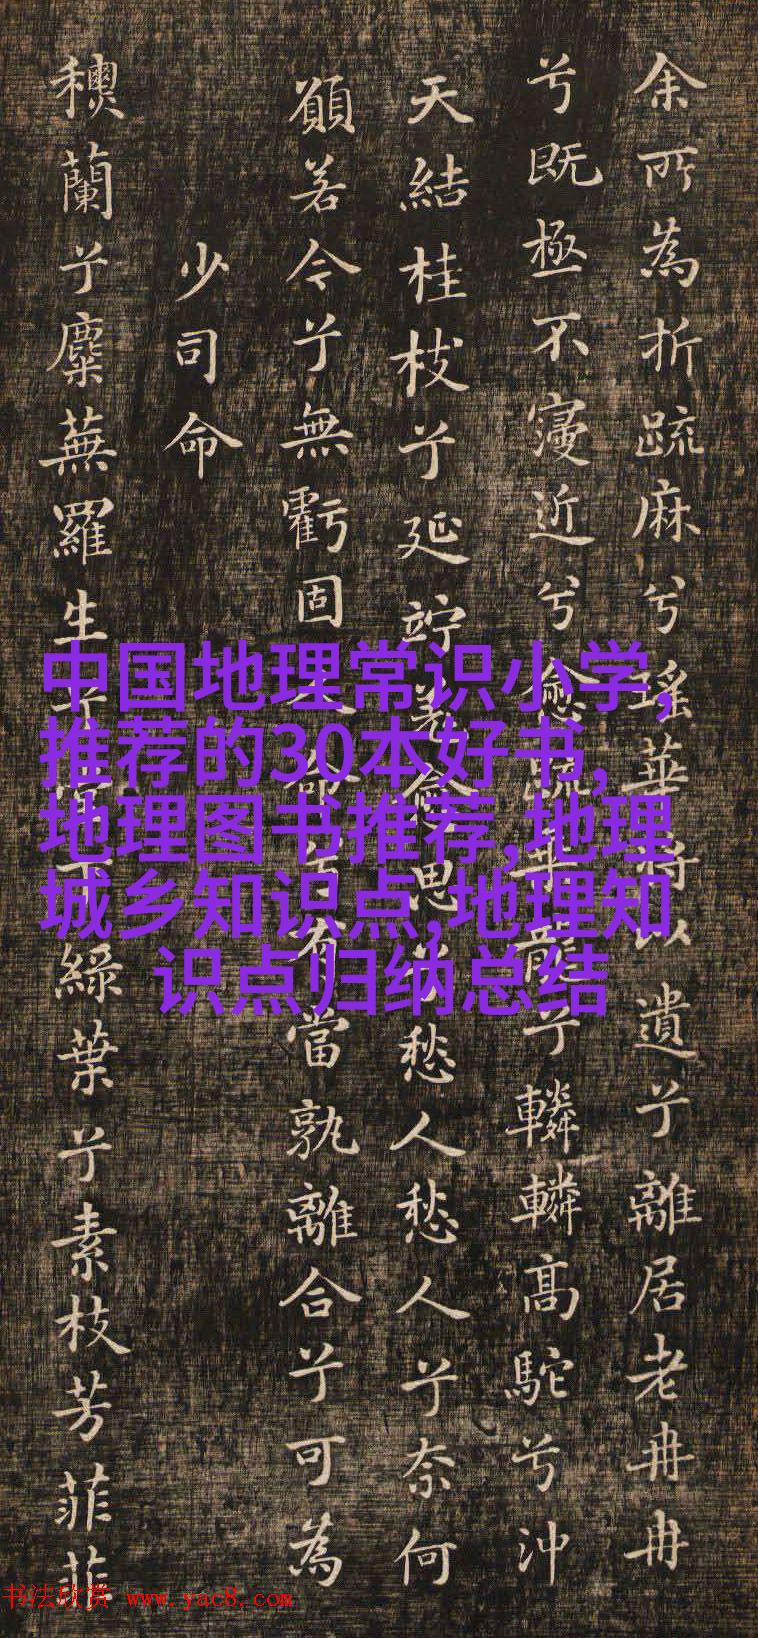 余所為折疏麻兮瑤華將以遺兮離居老冉冉
兮既極不寖近兮愈疏乘龍兮轔轔髙駝兮沖
天結桂枝兮延竚羌愈思兮愁人愁人兮奈何
願若今兮無虧固人命兮有當孰離合兮可為
少司命
穠蘭兮麋蕪羅生兮堂下緑葉兮素枝芳菲菲
中国地理常识小学,
推荐的30本好书,
地理图书推荐,地理
城乡知识点,地理知
识点归纳总结
书法欣赏 www.yac8.com